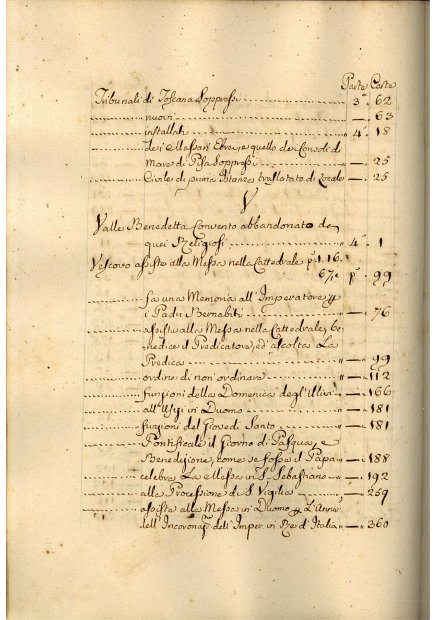 Parte Carte
Tribunali di Toscana Soppressi ........ 3.ª 62
........ nuovi ........ — 63
........ installati ........ 4.ª 18
........ dei Massari Ebrei, e quello dei Consoli di
Mare di Pisa Soppressi ........ — 25
........ Civile di prima Istanza traslatato di Locale — 25
V
Valle Benedetta Convento abbandonato da
quei Religiosi ........ 4.ª 1
Vescovo assiste alla Messa nella Cattedrale p.ª 1. 16.
67, e p.ª 99
........ fa una Memoria all' Imperatore
i Padri Bernabiti ........ " — 76
........ assiste alla Messa nella Cattedrale, be-
nedice il Predicatore, ed ascolta La
Predica ........ " — 99
........ ordine di non ordinare ........ " — 112
........ funzioni della Domenica degl' Ulivi " — 166
........ all' Ufizi in Duomo ........ " — 181
........ funzioni del Giovedi Santo ........ " — 181
........ Pontificale il Giorno di Pasqua, e
Benedizione, come se fosse il Papa " — 188
........ celebra La Messa in S. Sebastiano " — 192
........ alla Processione di S. Vigilia ........ — 259
........ assiste alla Messa in Duomo L' Anni
dell' Incoronaz. dell' Imper. in Re d' Italia " — 360